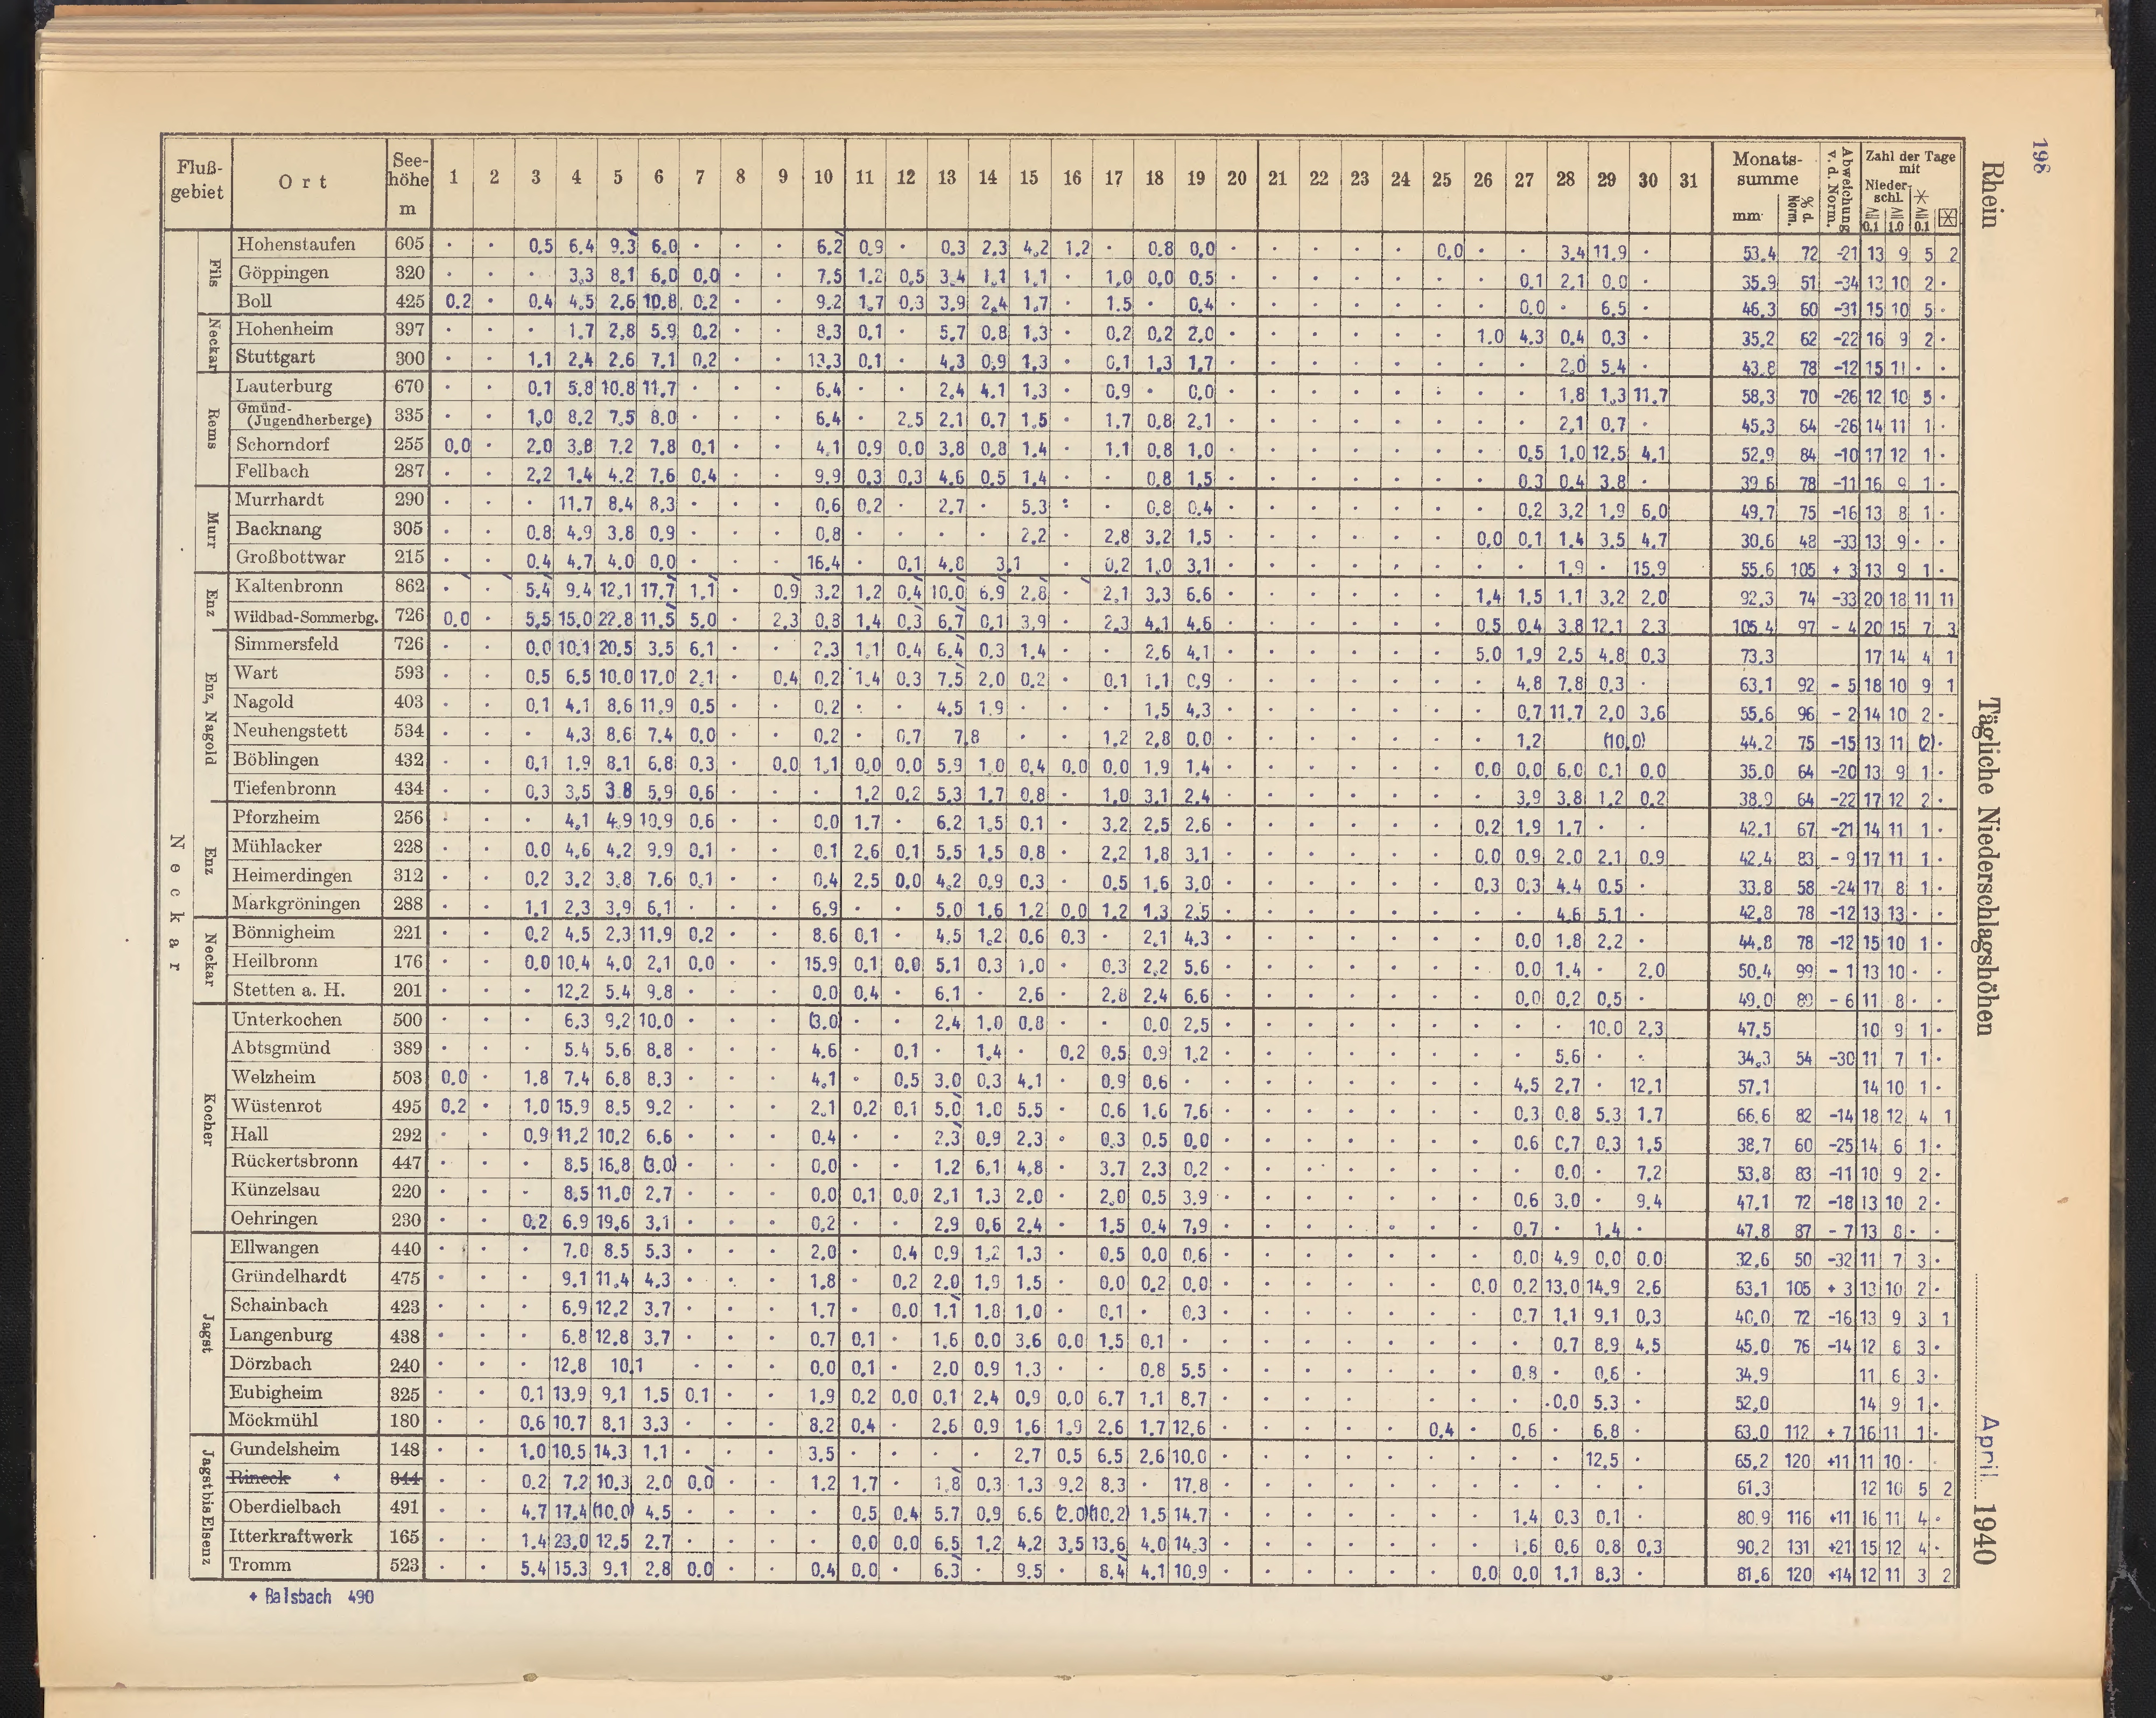 198
Rhein
Tägliche Niederschlagshöhen
April 1940
Fluß-gebiet | Ort | See-höhe m | 1 | 2 | 3 | 4 | 5 | 6 | 7 | 8 | 9 | 10 | 11 | 12 | 13 | 14 | 15 | 16 | 17 | 18 | 19 | 20 | 21 | 22 | 23 | 24 | 25 | 26 | 27 | 28 | 29 | 30 | 31 | Monats-summe mm | % d. Norm. | Abweichung v. d. Norm. | Zahl der Tage mit Nieder-schl. ≧ 0.1 | ≧ 1.0 | ≧ 0.1
Neckar
Fils
Hohenstaufen 605 · · 0.5 6.4 9.3 6.0 · · · 6.2 0.9 · 0.3 2.3 4.2 1.2 · 0.8 0.0 · · · · · 0.0 · · 3.4 11.9 · 53.4 72 -21 13 9 5 2
Göppingen 320 · · · 3.3 8.1 6.0 0.0 · · 7.5 1.2 0.5 3.4 1.1 1.1 · 1.0 0.0 0.5 · · · · · · · 0.1 2.1 0.0 · 35.9 51 -34 13 10 2 ·
Boll 425 0.2 · 0.4 4.5 2.6 10.8 0.2 · · 9.2 1.7 0.3 3.9 2.4 1.7 · 1.5 · 0.4 · · · · · · · 0.0 · 6.5 · 46.3 60 -31 15 10 5 ·
Neckar
Hohenheim 397 · · · 1.7 2.8 5.9 0.2 · · 8.3 0.1 · 5.7 0.8 1.3 · 0.2 0.2 2.0 · · · · · · 1.0 4.3 0.4 0.3 · 35.2 62 -22 16 9 2 ·
Stuttgart 300 · · 1.1 2.4 2.6 7.1 0.2 · · 13.3 0.1 · 4.3 0.9 1.3 · 0.1 1.3 1.7 · · · · · · · · 2.0 5.4 · 43.8 78 -12 15 11 · ·
Rems
Lauterburg 670 · · 0.1 5.8 10.8 11.7 · · · 6.4 · · 2.4 4.1 1.3 · 0.9 · 0.0 · · · · · · · · 1.8 1.3 11.7 58.3 70 -26 12 10 5 ·
Gmünd-(Jugendherberge) 335 · · 1.0 8.2 7.5 8.0 · · · 6.4 · 2.5 2.1 0.7 1.5 · 1.7 0.8 2.1 · · · · · · · · 2.1 0.7 · 45.3 64 -26 14 11 1 ·
Schorndorf 255 0.0 · 2.0 3.8 7.2 7.8 0.1 · · 4.1 0.9 0.0 3.8 0.8 1.4 · 1.1 0.8 1.0 · · · · · · · 0.5 1.0 12.5 4.1 52.9 84 -10 17 12 1 ·
Fellbach 287 · · 2.2 1.4 4.2 7.6 0.4 · · 9.9 0.3 0.3 4.6 0.5 1.4 · · 0.8 1.5 · · · · · · · 0.3 0.4 3.8 · 39.6 78 -11 16 9 1 ·
Murr
Murrhardt 290 · · · 11.7 8.4 8.3 · · · 0.6 0.2 · 2.7 · 5.3 : · 0.8 0.4 · · · · · · · 0.2 3.2 1.9 6.0 49.7 75 -16 13 8 1 ·
Backnang 305 · · 0.8 4.9 3.8 0.9 · · · 0.8 · · · · 2.2 · 2.8 3.2 1.5 · · · · · · 0.0 0.1 1.4 3.5 4.7 30.6 48 -33 13 9 · ·
Großbottwar 215 · · 0.4 4.7 4.0 0.0 · · · 16.4 · 0.1 4.8 3.1 · 0.2 1.0 3.1 · · · · · · · · 1.9 · 15.9 55.6 105 + 3 13 9 1 ·
Enz
Kaltenbronn 862 · · 5.4 9.4 12.1 17.7 1.1 · 0.9 3.2 1.2 0.4 10.0 6.9 2.8 · 2.1 3.3 6.6 · · · · · · 1.4 1.5 1.1 3.2 2.0 92.3 74 -33 20 18 11 11
Wildbad-Sommerbg. 726 0.0 · 5.5 15.0 22.8 11.5 5.0 · 2.3 0.8 1.4 0.3 6.7 0.1 3.9 · 2.3 4.1 4.6 · · · · · · 0.5 0.4 3.8 12.1 2.3 105.4 97 - 4 20 15 7 3
Enz, Nagold
Simmersfeld 726 · · 0.0 10.1 20.5 3.5 6.1 · · 2.3 1.1 0.4 6.4 0.3 1.4 · · 2.6 4.1 · · · · · · 5.0 1.9 2.5 4.8 0.3 73.3 17 14 4 1
Wart 593 · · 0.5 6.5 10.0 17.0 2.1 · 0.4 0.2 1.4 0.3 7.5 2.0 0.2 · 0.1 1.1 0.9 · · · · · · · 4.8 7.8 0.3 · 63.1 92 - 5 18 10 9 1
Nagold 403 · · 0.1 4.1 8.6 11.9 0.5 · · 0.2 · · 4.5 1.9 · · · 1.5 4.3 · · · · · · · 0.7 11.7 2.0 3.6 55.6 96 - 2 14 10 2 ·
Neuhengstett 534 · · · 4.3 8.6 7.4 0.0 · · 0.2 · 0.7 7.8 · · 1.2 2.8 0.0 · · · · · · · 1.2 (10.0) 44.2 75 -15 13 11 (2) ·
Böblingen 432 · · 0.1 1.9 8.1 6.8 0.3 · 0.0 1.1 0.0 0.0 5.9 1.0 0.4 0.0 0.0 1.9 1.4 · · · · · · 0.0 0.0 6.0 0.1 0.0 35.0 64 -20 13 9 1 ·
Tiefenbronn 434 · · 0.3 3.5 3.8 5.9 0.6 · · · 1.2 0.2 5.3 1.7 0.8 · 1.0 3.1 2.4 · · · · · · · 3.9 3.8 1.2 0.2 38.9 64 -22 17 12 2 ·
Enz
Pforzheim 256 · · · 4.1 4.9 10.9 0.6 · · 0.0 1.7 · 6.2 1.5 0.1 · 3.2 2.5 2.6 · · · · · · 0.2 1.9 1.7 · · 42.1 67 -21 14 11 1 ·
Mühlacker 228 · · 0.0 4.6 4.2 9.9 0.1 · · 0.1 2.6 0.1 5.5 1.5 0.8 · 2.2 1.8 3.1 · · · · · · 0.0 0.9 2.0 2.1 0.9 42.4 83 - 9 17 11 1 ·
Heimerdingen 312 · · 0.2 3.2 3.8 7.6 0.1 · · 0.4 2.5 0.0 4.2 0.9 0.3 · 0.5 1.6 3.0 · · · · · · 0.3 0.3 4.4 0.5 · 33.8 58 -24 17 8 1 ·
Markgröningen 288 · · 1.1 2.3 3.9 6.1 · · · 6.9 · · 5.0 1.6 1.2 0.0 1.2 1.3 2.5 · · · · · · · · 4.6 5.1 · 42.8 78 -12 13 13 · ·
Neckar
Bönnigheim 221 · · 0.2 4.5 2.3 11.9 0.2 · · 8.6 0.1 · 4.5 1.2 0.6 0.3 · 2.1 4.3 · · · · · · · 0.0 1.8 2.2 · 44.8 78 -12 15 10 1 ·
Heilbronn 176 · · 0.0 10.4 4.0 2.1 0.0 · · 15.9 0.1 0.0 5.1 0.3 1.0 · 0.3 2.2 5.6 · · · · · · · 0.0 1.4 · 2.0 50.4 99 - 1 13 10 · ·
Stetten a. H. 201 · · · 12.2 5.4 9.8 · · · 0.0 0.4 · 6.1 · 2.6 · 2.8 2.4 6.6 · · · · · · · 0.0 0.2 0.5 · 49.0 89 - 6 11 8 · ·
Kocher
Unterkochen 500 · · · 6.3 9.2 10.0 · · · (3.0) · · 2.4 1.0 0.8 · · 0.0 2.5 · · · · · · · · · 10.0 2.3 47.5 10 9 1 ·
Abtsgmünd 389 · · · 5.4 5.6 8.8 · · · 4.6 · 0.1 · 1.4 · 0.2 0.5 0.9 1.2 · · · · · · · · 5.6 · · 34.3 54 -30 11 7 1 ·
Welzheim 503 0.0 · 1.8 7.4 6.8 8.3 · · · 4.1 · 0.5 3.0 0.3 4.1 · 0.9 0.6 · · · · · · · · 4.5 2.7 · 12.1 57.1 14 10 1 ·
Wüstenrot 495 0.2 · 1.0 15.9 8.5 9.2 · · · 2.1 0.2 0.1 5.0 1.0 5.5 · 0.6 1.6 7.6 · · · · · · · 0.3 0.8 5.3 1.7 66.6 82 -14 18 12 4 1
Hall 292 · · 0.9 11.2 10.2 6.6 · · · 0.4 · · 2.3 0.9 2.3 · 0.3 0.5 0.0 · · · · · · · 0.6 0.7 0.3 1.5 38.7 60 -25 14 6 1 ·
Rückertsbronn 447 · · · 8.5 16.8 (3.0) · · · 0.0 · · 1.2 6.1 4.8 · 3.7 2.3 0.2 · · · · · · · · 0.0 · 7.2 53.8 83 -11 10 9 2 ·
Künzelsau 220 · · · 8.5 11.0 2.7 · · · 0.0 0.1 0.0 2.1 1.3 2.0 · 2.0 0.5 3.9 · · · · · · · 0.6 3.0 · 9.4 47.1 72 -18 13 10 2 ·
Oehringen 230 · · 0.2 6.9 19.6 3.1 · · · 0.2 · · 2.9 0.6 2.4 · 1.5 0.4 7.9 · · · · · · · 0.7 · 1.4 · 47.8 87 - 7 13 8 · ·
Jagst
Ellwangen 440 · · · 7.0 8.5 5.3 · · · 2.0 · 0.4 0.9 1.2 1.3 · 0.5 0.0 0.6 · · · · · · · 0.0 4.9 0.0 0.0 32.6 50 -32 11 7 3 ·
Gründelhardt 475 · · · 9.1 11.4 4.3 · · · 1.8 · 0.2 2.0 1.9 1.5 · 0.0 0.2 0.0 · · · · · · 0.0 0.2 13.0 14.9 2.6 63.1 105 + 3 13 10 2 ·
Schainbach 423 · · · 6.9 12.2 3.7 · · · 1.7 · 0.0 1.1 1.8 1.0 · 0.1 · 0.3 · · · · · · · 0.7 1.1 9.1 0.3 40.0 72 -16 13 9 3 1
Langenburg 438 · · · 6.8 12.8 3.7 · · · 0.7 0.1 · 1.6 0.0 3.6 0.0 1.5 0.1 · · · · · · · · · 0.7 8.9 4.5 45.0 76 -14 12 8 3 ·
Dörzbach 240 · · · 12.8 10.1 · · · 0.0 0.1 · 2.0 0.9 1.3 · · 0.8 5.5 · · · · · · · 0.8 · 0.6 · 34.9 11 6 3 ·
Eubigheim 325 · · 0.1 13.9 9.1 1.5 0.1 · · 1.9 0.2 0.0 0.1 2.4 0.9 0.0 6.7 1.1 8.7 · · · · · · · · 0.0 5.3 · 52.0 14 9 1 ·
Möckmühl 180 · · 0.6 10.7 8.1 3.3 · · · 8.2 0.4 · 2.6 0.9 1.6 1.9 2.6 1.7 12.6 · · · · · 0.4 · 0.6 · 6.8 · 63.0 112 + 7 16 11 1 ·
Jagst bis Elsenz
Gundelsheim 148 · · 1.0 10.5 14.3 1.1 · · · 3.5 · · · · 2.7 0.5 6.5 2.6 10.0 · · · · · · · · · 12.5 · 65.2 120 +11 11 10 · ·
Rineck + 344 · · 0.2 7.2 10.3 2.0 0.0 · · 1.2 1.7 · 1.8 0.3 1.3 9.2 8.3 · 17.8 · · · · · · · · · · · 61.3 12 10 5 2
Oberdielbach 491 · · 4.7 17.4 (10.0) 4.5 · · · · 0.5 0.4 5.7 0.9 6.6 (2.0) (10.2) 1.5 14.7 · · · · · · · 1.4 0.3 0.1 · 80.9 116 +11 16 11 4 ·
Itterkraftwerk 165 · · 1.4 23.0 12.5 2.7 · · · · 0.0 0.0 6.5 1.2 4.2 3.5 13.6 4.0 14.3 · · · · · · · 1.6 0.6 0.8 0.3 90.2 131 +21 15 12 4 ·
Tromm 523 · · 5.4 15.3 9.1 2.8 0.0 · · 0.4 0.0 · 6.3 · 9.5 · 8.4 4.1 10.9 · · · · · · 0.0 0.0 1.1 8.3 · 81.6 120 +14 12 11 3 2
+ Balsbach 490